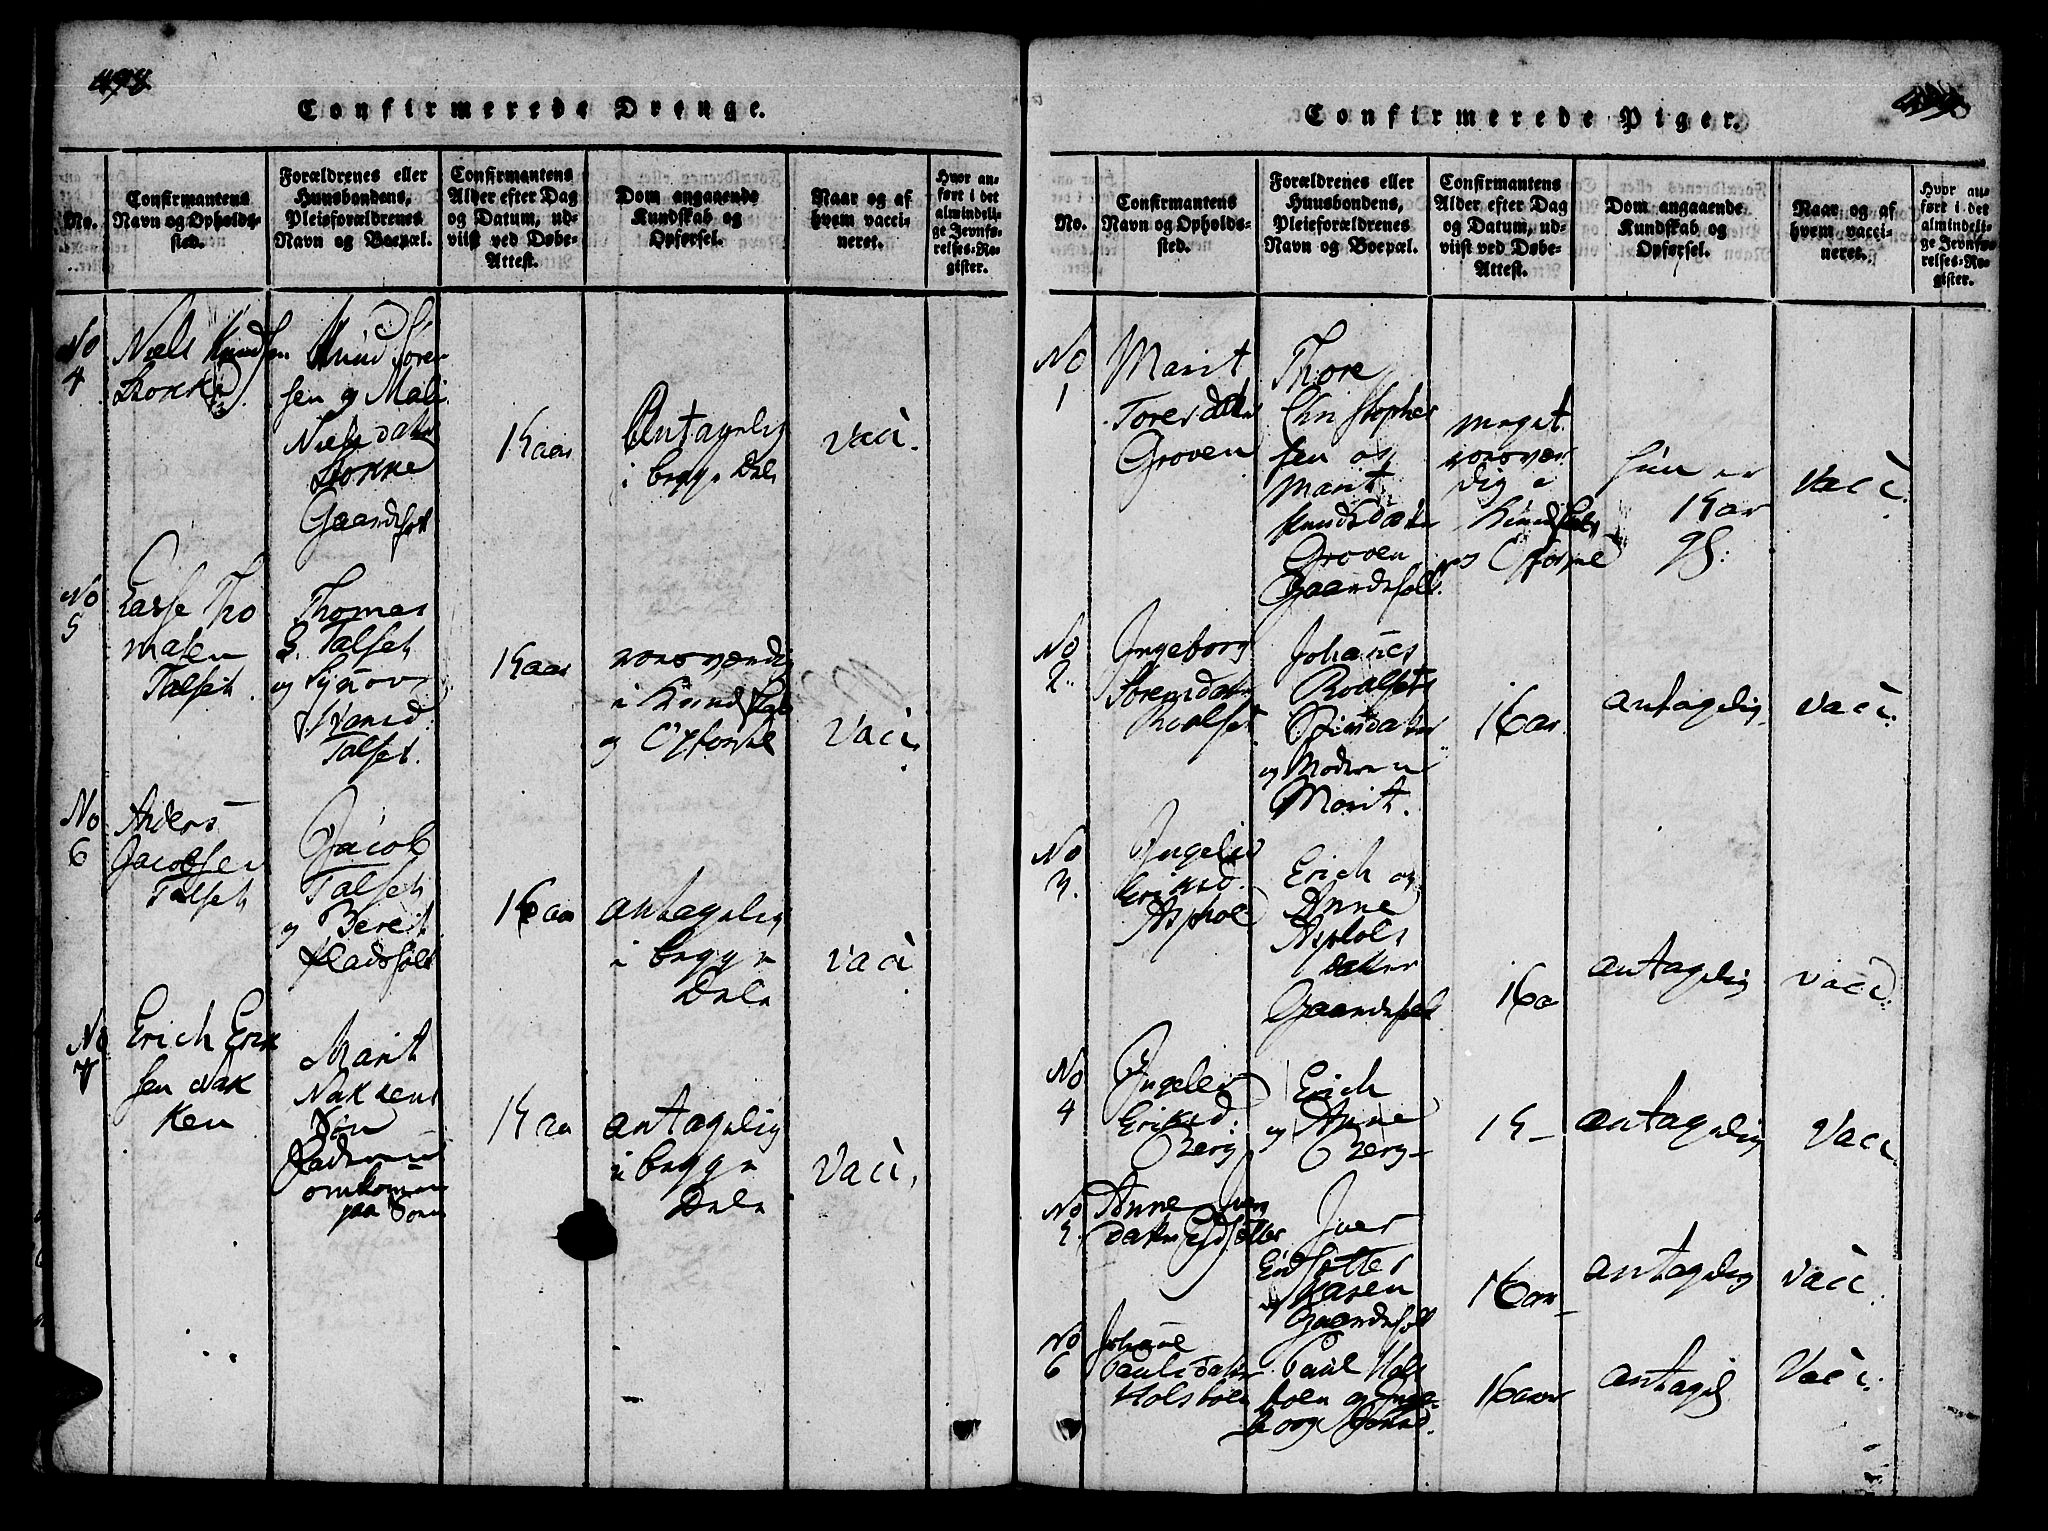 Confirmerede Drenge.
No.
Confirmantens
Navn og Opholds-
sted.
Forældrenes eller
Huusbondens,
Pleieforældrenes
Navn og Boepæl.
Confirmantens
Alder efter Dag
og Datum, ud-
viist ved Døbe-
Attest.
Dom angaaende
Kundskab og
Opførsel.
Naar og af
hvem vacci-
neret.
Hvor an-
ført i det
almindeli-
ge Jevnfø-
relses-Re-
gister.
No
4
Niels Knudsen
Stokke
Knud Sören
sen og Mali
Niels dater
Stokke
Gaardsfol
15 aar
Antagelig
i begge Dele
vaci.
No
5
Lasse Tho
masen
Talset
Thomes
Talset
og
Talset.
15 aar
roesværdig
i Kundskab
og Opförsel
Vaci.
No
6
Anders
Jacobsen
Talset
Jacob
Talset
og Bereit
16 aar
antagelig
i begge
Dele
vaci
No
7
Erich Erik
sen Nak
ken
Marit
Nakkens
Sön
Faderen
omkommen
paa Söen
15 aar
antagelig
i begge
Dele
Vaci,
Confirmerede Piger.
No.
Confirmantens
Navn og Opholds-
sted.
Forældrenes eller
Huusbondens,
Pleieforældrenes
Navn og Boepæl.
Confirmantens
Alder efter Dag
og Datum, ud-
viist ved Døbe-
Attest.
Dom angaaende
Kundskab og
Opførsel.
Naar og af
hvem vacci-
neret.
Hvor an-
ført i det
almindeli-
ge Jevnfø-
relses-Re-
gister.
No
1
Marit
Toresdatter
Groven
Thore
Christopher
sen og
Marit
Knudsdater
Groven
Gaardsfol.
meget
roesvær
dig i
Kundskab
og Opförsel
hun er
15 aar
vaci.
No
2
Ingeborg
Roalset
Johannes
Roalset
og Moderen
Marit.
16 aar
antagelig
vaci.
No
3.
Ingelev
Eriksd.
Asphol
Erich og
Anne
Asphols
dater
Gaardsfol
16 a
antagelig
vaci.
No
4
Ingeler
Eriksd:
Berg
Erich
og Anne
Berg
15 –
antagelig
Vaci.
No
5.
Anne Iver
dater Eidsætter
Iver
Eidsætter
og Karen
Gaardsfol
16 aar
antagelig
vaci.
No
6
Johanne
Paulsdater
Holsböen
Paul Hols
böen og Inge
borg
16 aar
antagelig
Vaci.